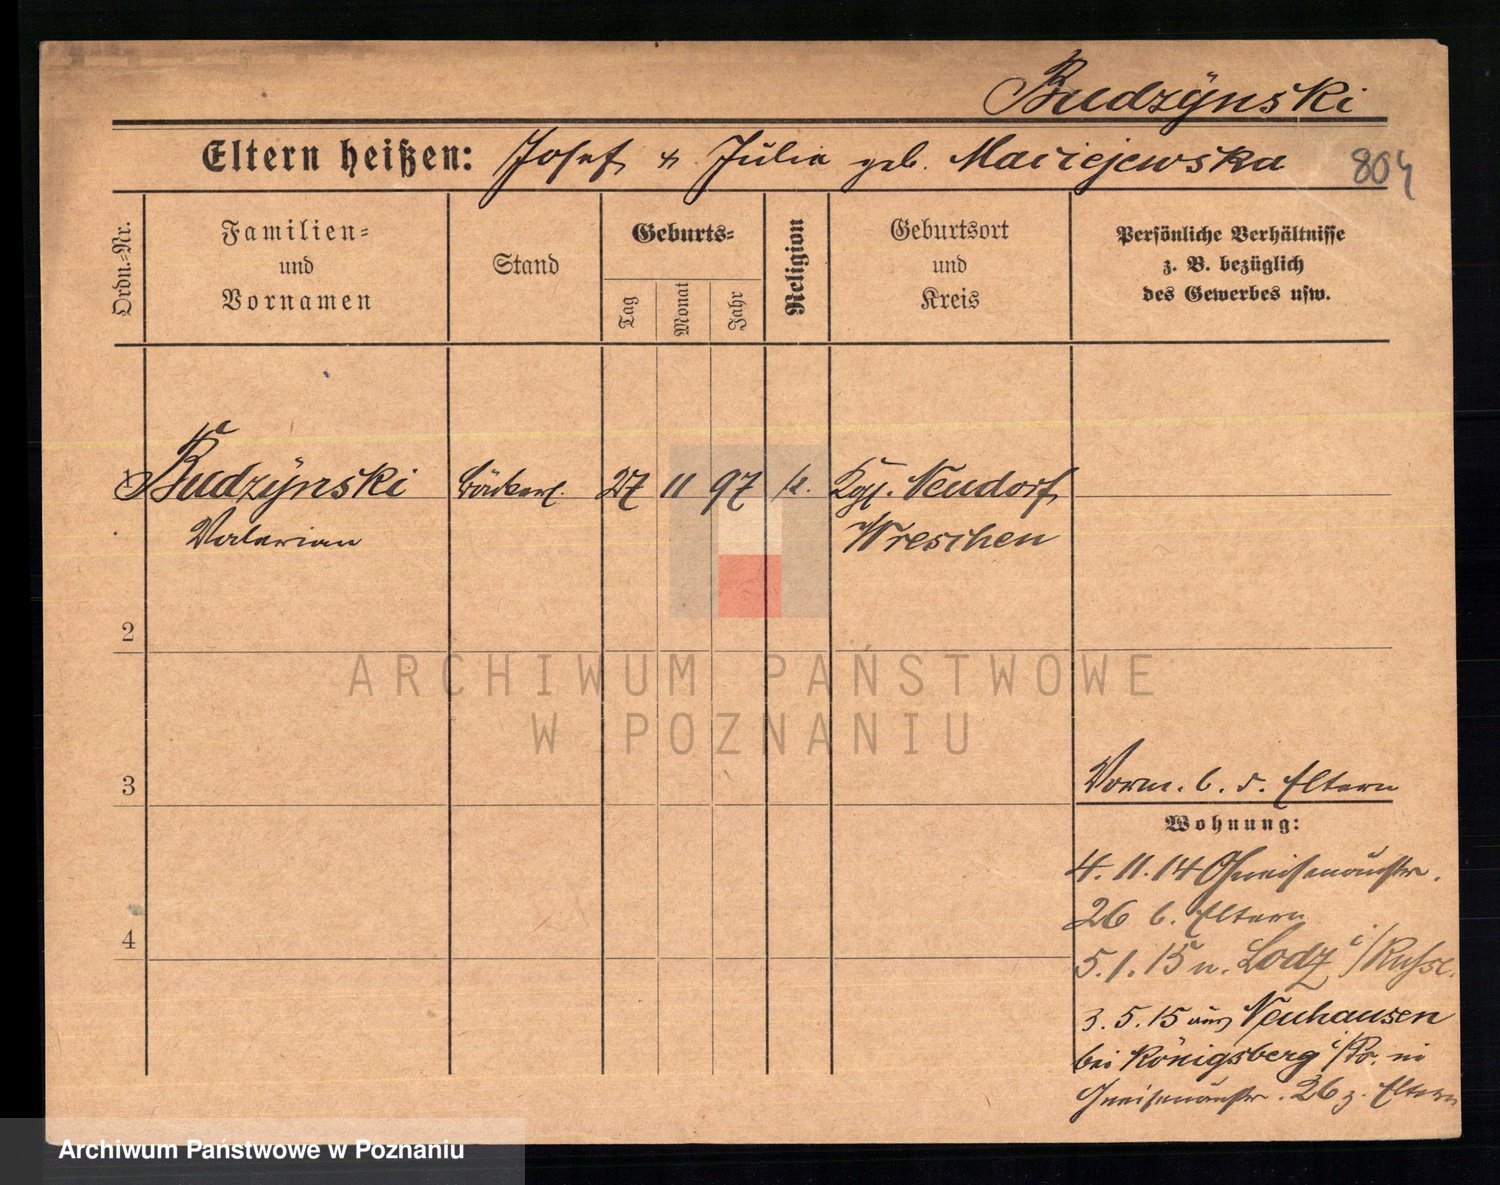 Budzÿnski
Eltern heißen: Josef & Julia geb. Maciejewska 804
Ordn.-Nr.
Familien-
und
Vornamen
Stand
Geburts-
Tag
Monat
Jahr
Religion
Geburtsort
und
Kreis
Persönliche Verhältnisse
z. B. bezüglich
des Gewerbes usw.
1 Budzÿnski Bäckerl. 27 11 97 k. Kgl. Neudorf
Valerian Wreschen
2
3
4
Vorm. b. d. Eltern
Wohnung:
4. 11. 14 Gneisenaustr.
26 b. Eltern
5. 1. 15 n. Lodz i/Russl.
3. 5. 15 aus Neuhausen
bei Königsberg i/Pr. in
Gneisenaustr. 26 z. Eltern
ARCHIWUM PAŃSTWOWE
W POZNANIU
Archiwum Państwowe w Poznaniu